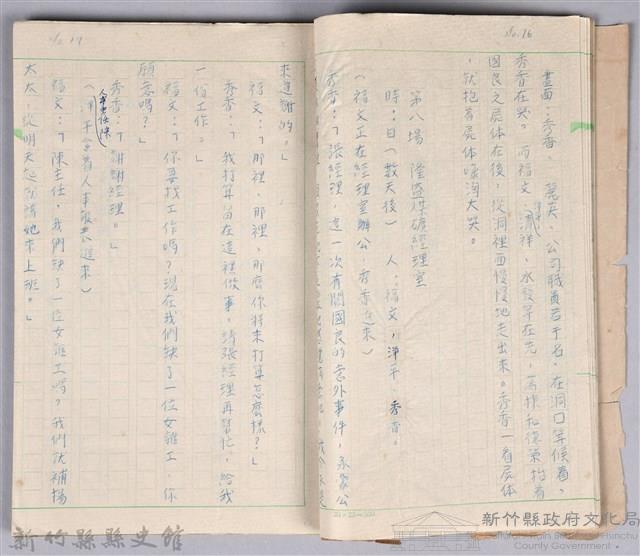 No.16
畫面：秀香、 慧英、公司職員若干名，在洞口等候着，
秀香在哭。 而福文、 水發等在先，
國良之屍体在後，從洞裡面慢慢地走出來。秀香一看屍体
，就抱着屍体嚎淘大哭。
第八場 隆盛煤礦經理室
時：日（數天後） 人：福文，淨平，秀香。
（福文正在經理室辦公，秀香進來）
秀香：「張經理，這一次有關國良的意外事件，承蒙公
No.17
來道謝的。」
福文：「那裡，那裡，那麼你將來打算怎麼樣？」
秀香：「我打算留在這裡做事，請張經理再幫忙，給我
一份工作。」
福文：「你要找工作嗎？現在我們缺了一位女雜工，你
願意嗎？」
秀香：「謝謝經理。」
（淨平拿着人事報表進來）
人事主任陳
福文：「陳主任，我們缺了一位女雜工嗎？我們就補楊
太太，從明天起就請她來上班。」
新竹縣縣史館
新竹縣政府文化局
County Government